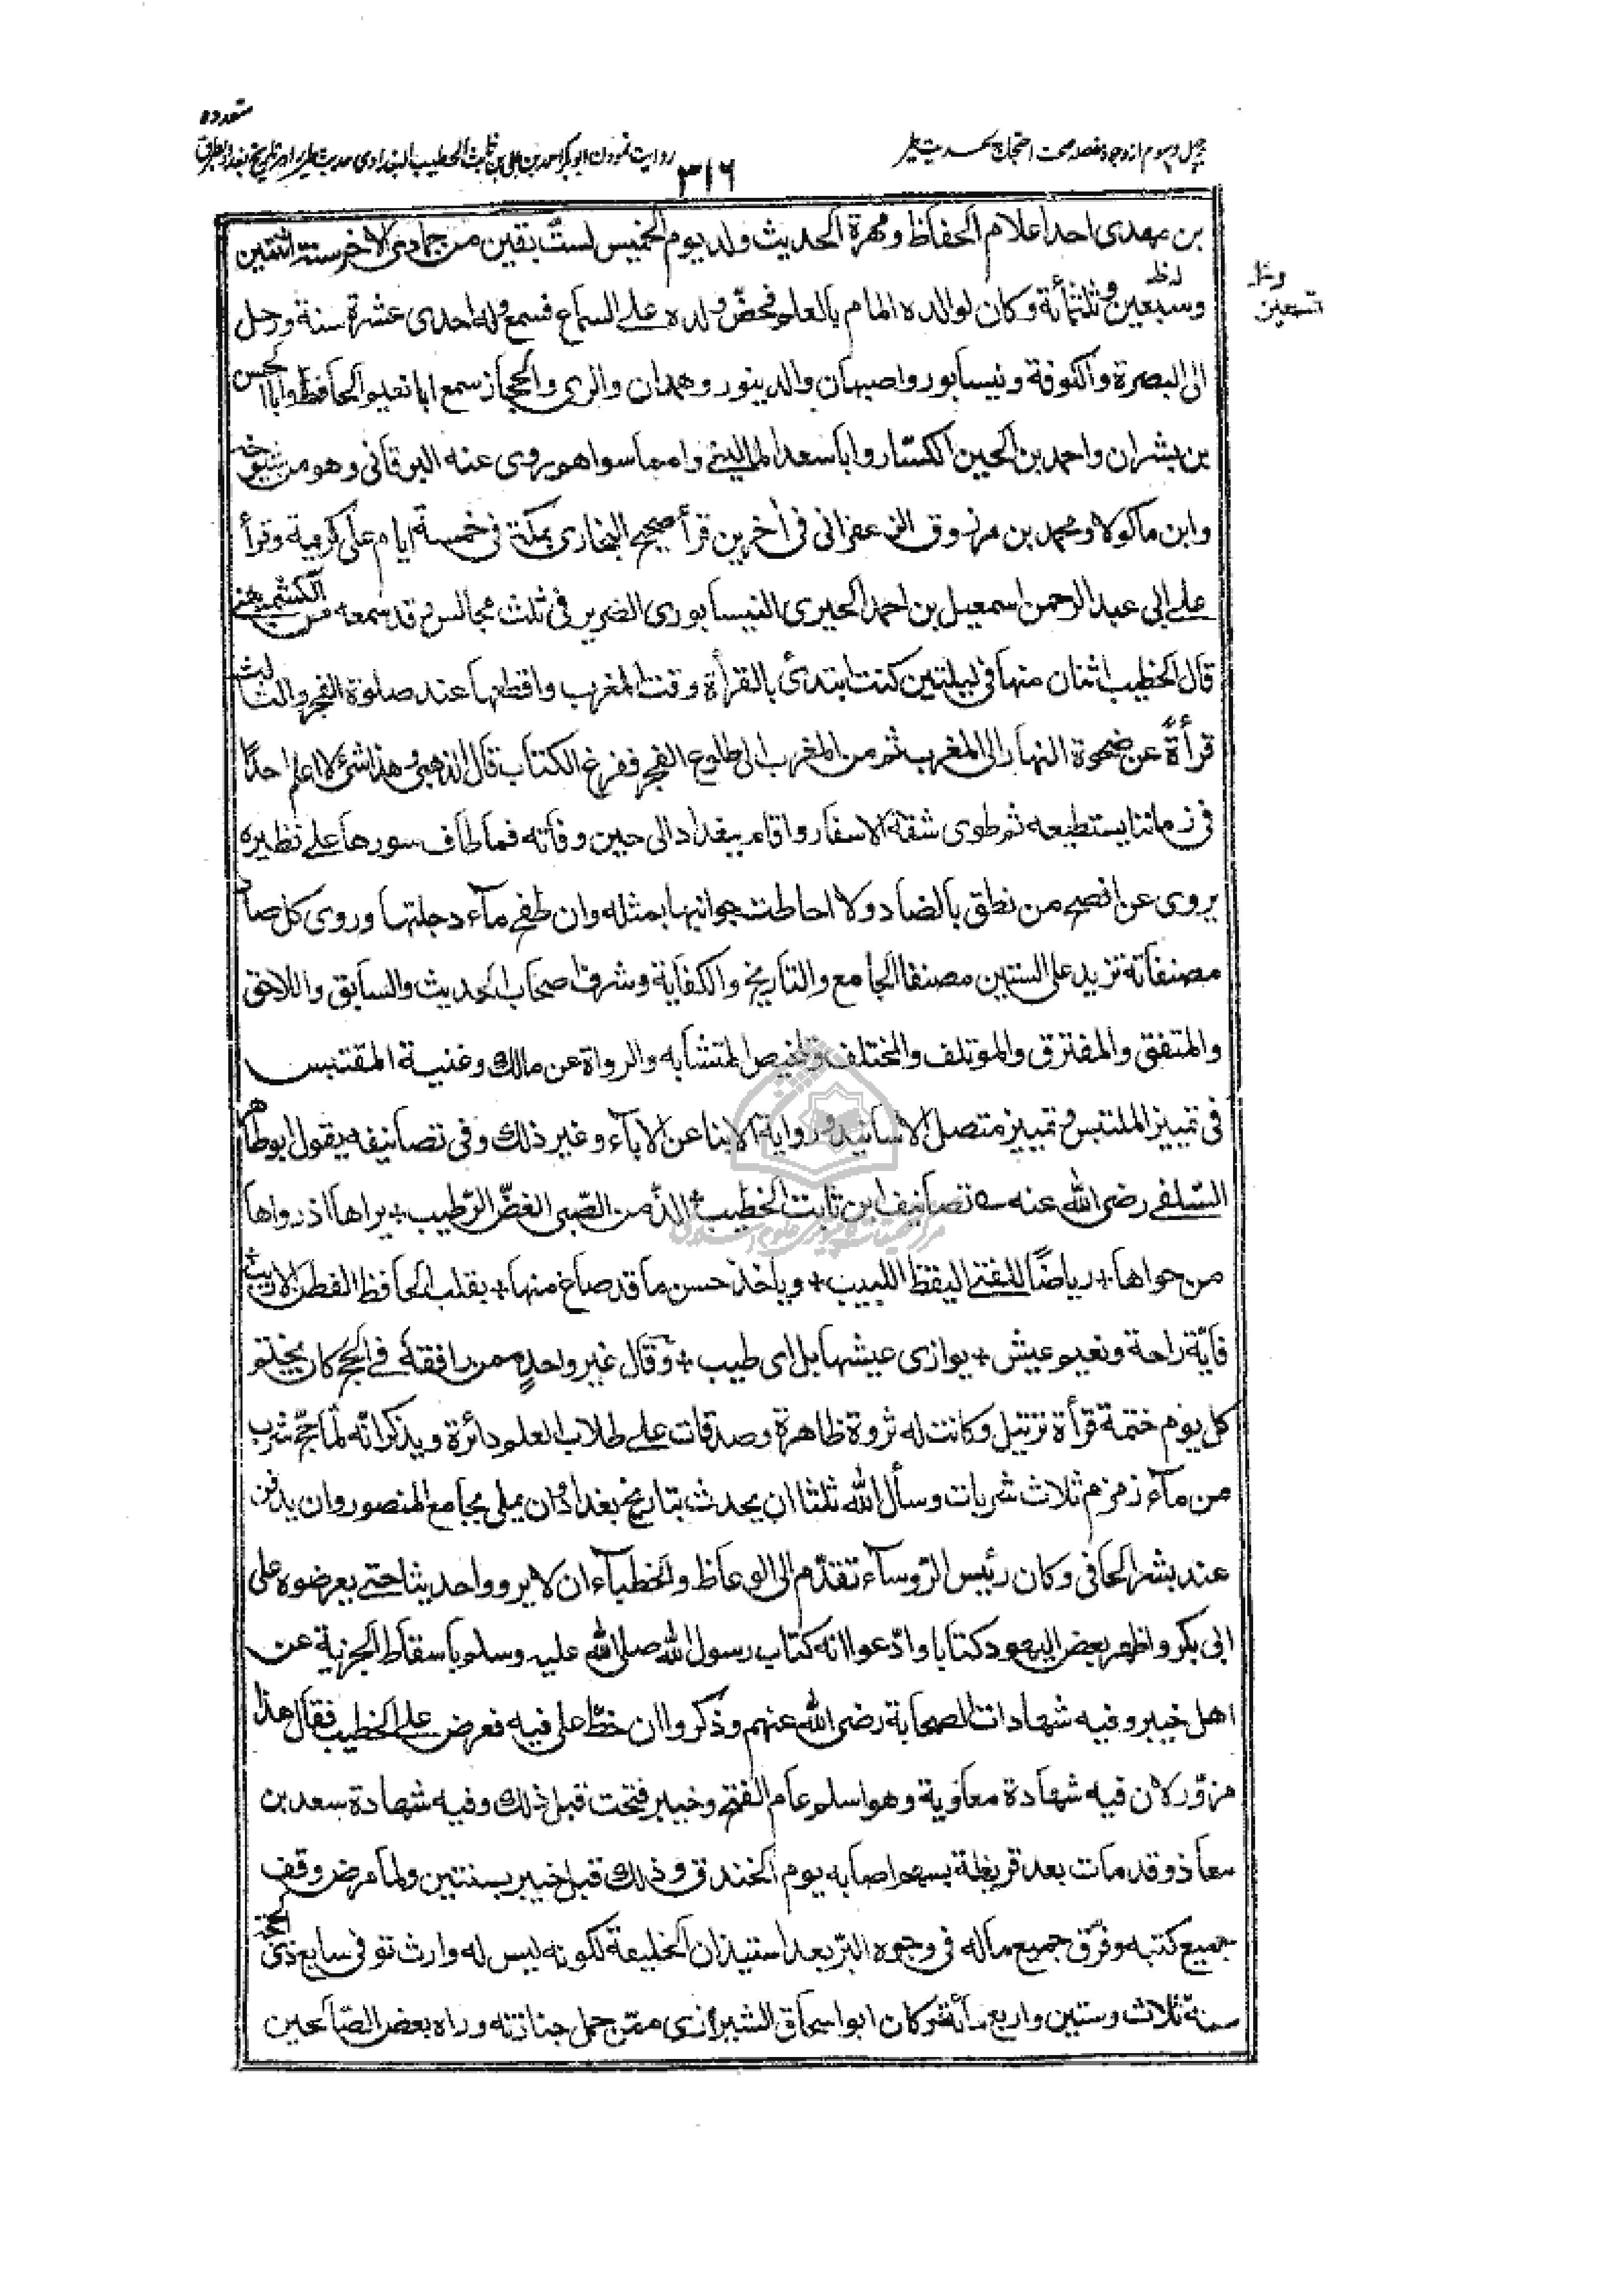 متعدده
چهل و سوم از وجوه مفصله صحت احتجاج بحديث طير
روايت نمودن ابو بكر احمد بن علي بن ثابت الخطيب البغدادي حديث طير را در تاريخ بغداد بطرق
٣١٦
بن مهدى احد اعلام الحفاظ و مهرة الحديث ولد يوم الخميس لست بقين من جمادى الاخر سنة اثنتين
وسبعين وثلثمائة وكان لوالده المام بالعلم فحض ولده على السماع فسمع وله احدى عشرة سنة ورحل
تسعين
الى البصرة والكوفة ونيسابور واصبهان والدينور وهمدان والرى والحجاز سمع ابا نعيم الحافظ وابا الحسن
بن بشران واحمد بن الحسين الكسار وابا سعد المالينى وامما سواهم روى عنه البرقانى وهو من شيوخه
وابن ماكولا ومحمد بن مرزوق الزعفرانى فى اخرين قرأ صحيح البخارى بمكة فى خمسة ايام على كريمة وقرأ
على ابى عبد الرحمن اسمعيل بن احمد الحيرى النيسابورى الضرير فى ثلث مجالس وقد سمعه من الكشميهنى
قال الخطيب اثنان منها فى ليلتين كنت ابتدئ بالقرأة وقت المغرب واقطعها عند صلوة الفجر والثالث
قرأة عن ضحوة النهار الى المغرب ثم من المغرب الى طلوع الفجر ففرغ الكتاب قال الذهبى وهذا شئ لا اعلم احدًا
فى زماننا يستطيعه ثم طوى شقة الاسفار واقام ببغداد الى حين وفاته فما طاف سورها على نظيره
يروى عن افصح من نطق بالضاد ولا احاطت جوانبها بمثله وان طفح ماء دجلتها وروى كل صاد
مصنفاته تزيد على الستين مصنفا الجامع والتاريخ والكفاية وشرف اصحاب الحديث والسابق واللاحق
والمتفق والمفترق والموتلف والمختلف وتلخيص المتشابه والرواة عن مالك وغنية المقتبس
فى تمييز الملتبس وتمييز متصل الاسانيد ورواية الابنا عن الاباء وغير ذلك وفى تصانيفه يقول ابو طاهر
السلفى رضى الله عنه تصانيف ابن ثابت الخطيب + الذ من الصبى الغض الرطيب + يراها اذ رواها
من حواها + رياضًا للفتى اليقظ اللبيب + وياخذ حسن ما قد صاغ منها + بقلب الحافظ الفطن الاريب
فاية راحة ونعيم عيش + يوازى عيشها بل اى طيب + وقال غير واحد ممن رافقه فى الحج كان يختم
كل يوم ختمة قرأة ترتيل وكانت له ثروة ظاهرة وصدقات على طلاب العلم دائرة ويذكر انه لما حج شرب
من ماء زمزم ثلاث شربات وسأل الله ثلثا ان يحدث بتاريخ بغداد وان يملى بجامع المنصور وان يدفن
عند بشر الحافى وكان رئيس الرؤساء تقدم الى الوعاظ والخطباء ان لا يرووا حديثا حتى يعرضوه على
ابى بكر واظهر بعض اليهود كتابا وادعوا انه كتاب رسول الله صلى الله عليه وسلم باسقاط الجزية عن
اهل خيبر وفيه شهادات الصحابة رضى الله عنهم وذكروا ان خط على فيه فعرض على الخطيب فقال هذا
مزور لان فيه شهادة معاوية وهو اسلم عام الفتح وخيبر فتحت قبل ذلك وفيه شهادة سعد بن
معاذ وقد مات بعد قريظة بسهم اصابه يوم الخندق وذلك قبل خيبر بسنتين ولما مرض وقف
جميع كتبه وفرق جميع ماله فى وجوه البر بعد استيذان الخليفة لكونه ليس له وارث توفى سابع ذى الحجة
سنة ثلاث وستين واربع مائة وكان ابو اسحاق الشيرازى ممن حمل جنازته وراه بعض الصالحين